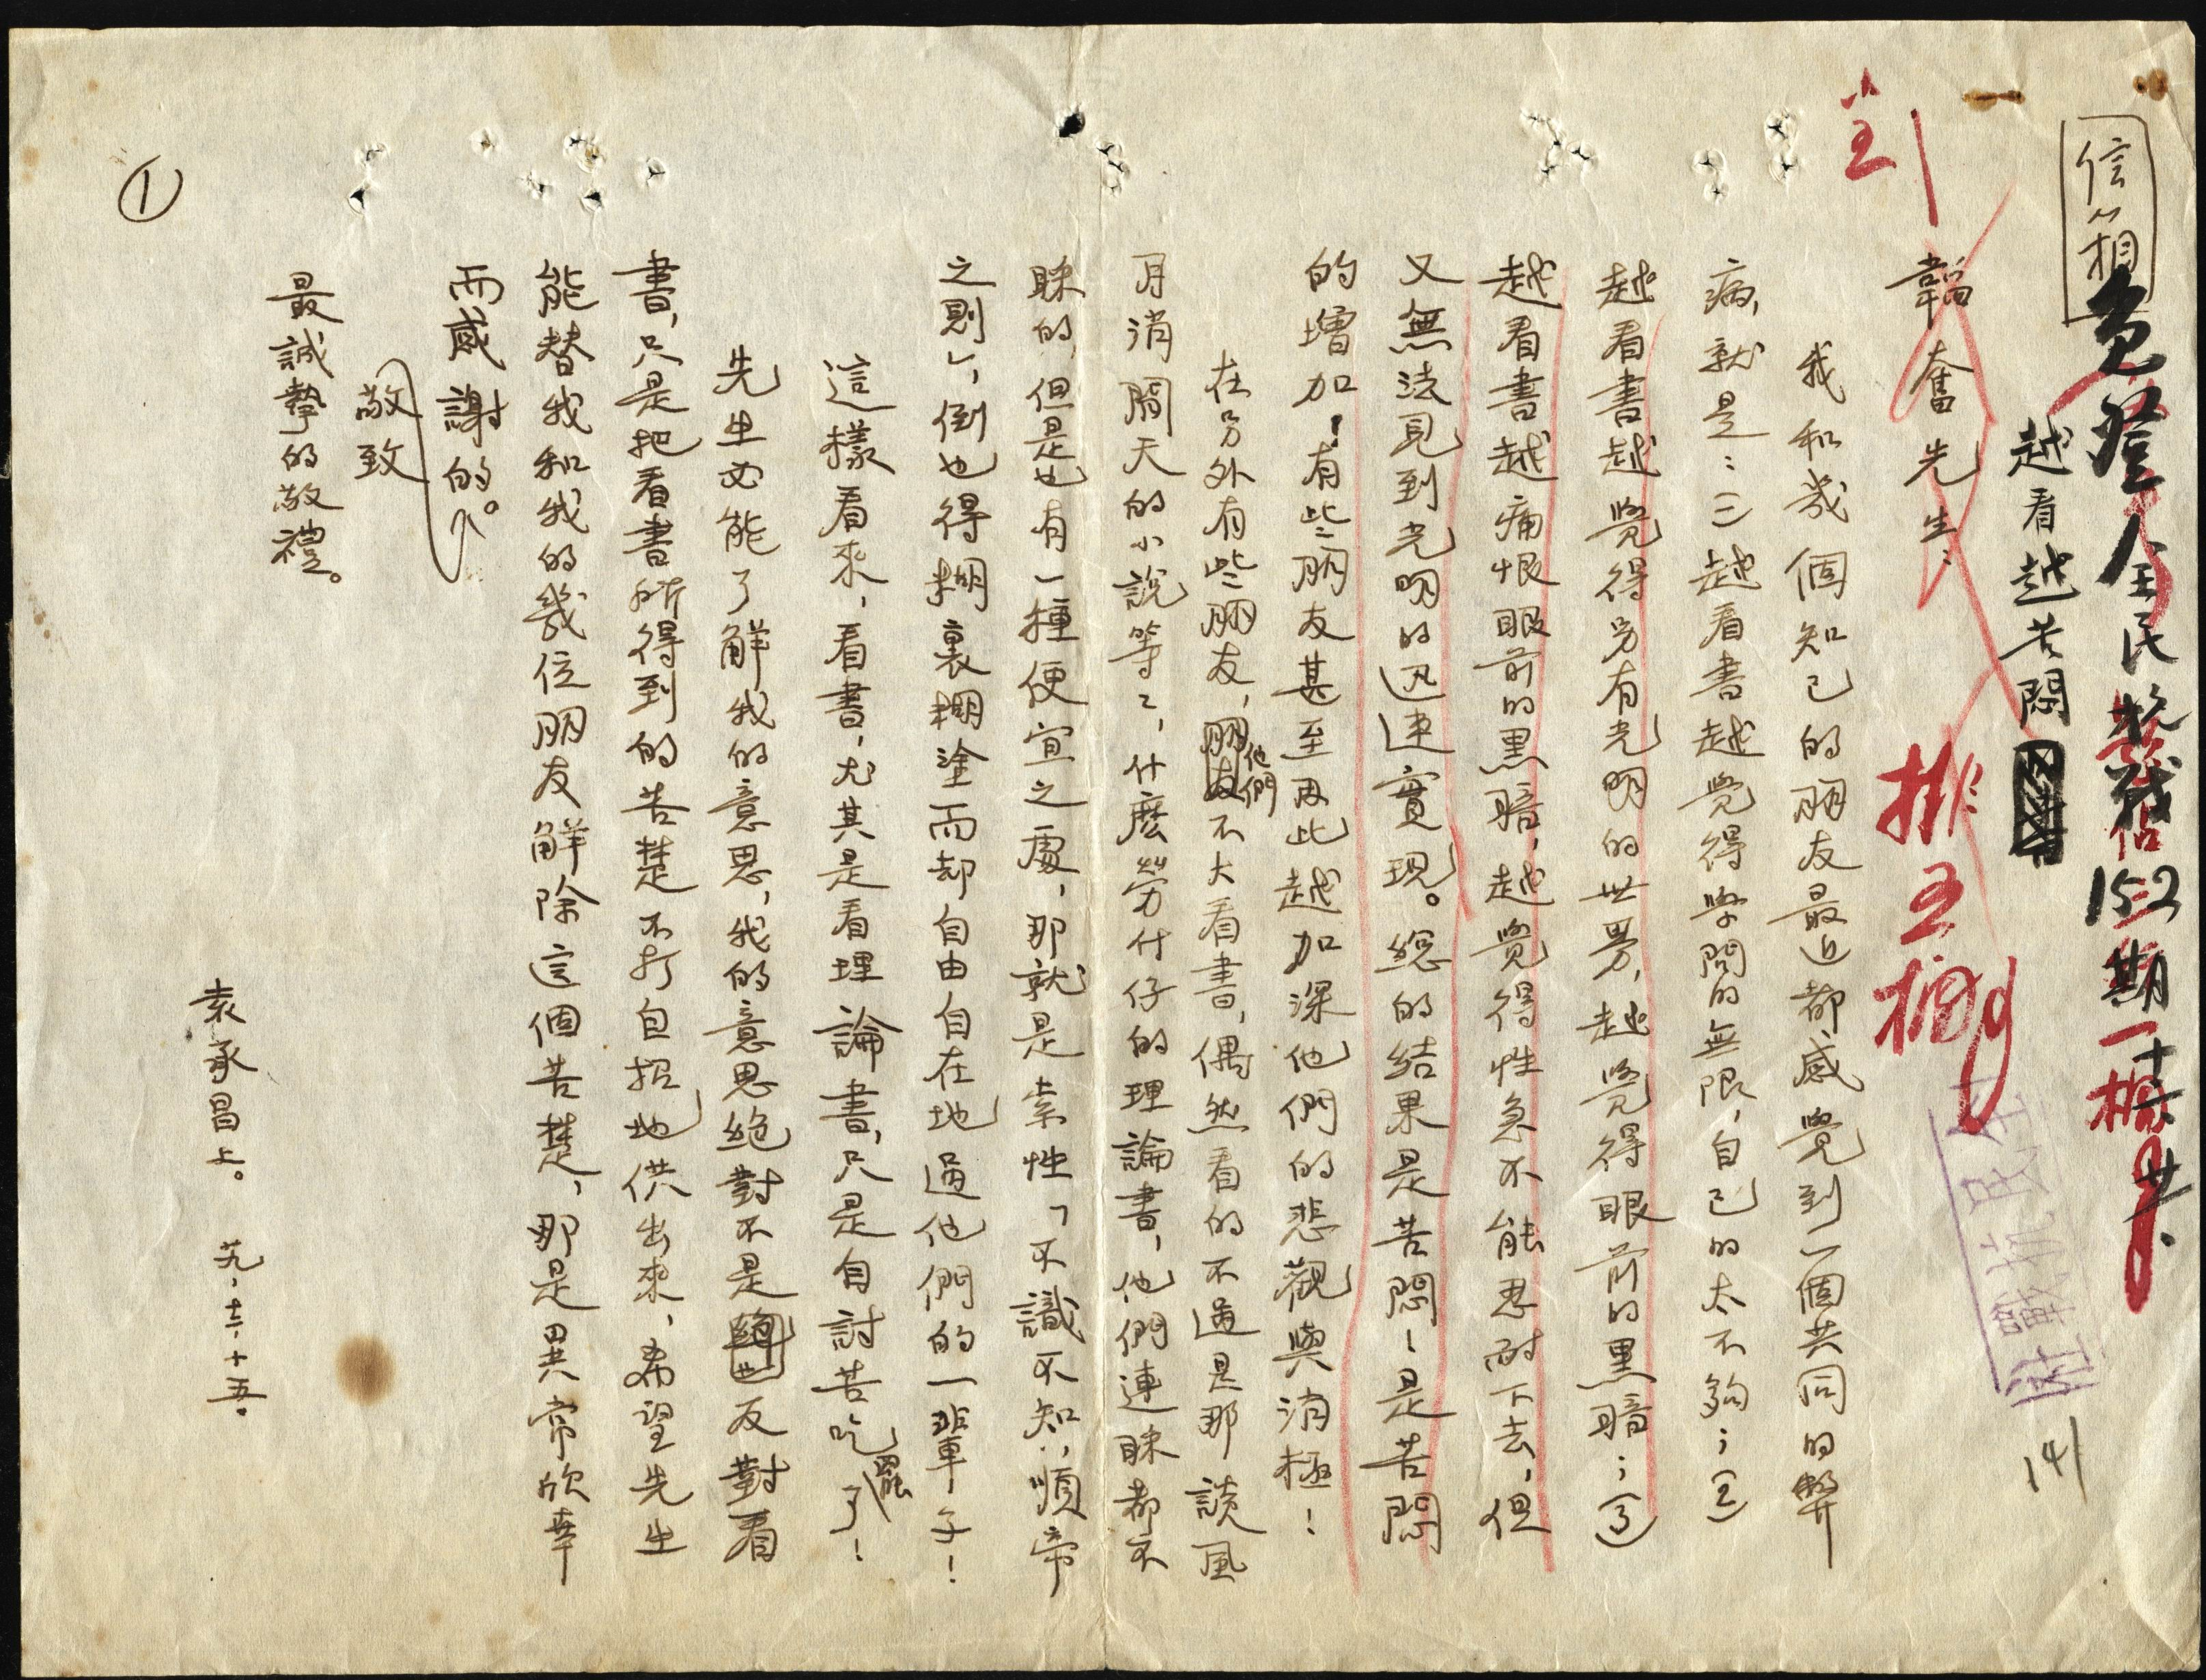 信箱
免登全民抗战152期
越看越苦悶
韜奮先生：
我和幾個知己的朋友最近都感覺到一個共同的弊
病，就是：㈠越看書越覺得學問的無限，自己的太不夠；㈡
越看書越覺得另有光明的世界，越覺得眼前的黑暗；㈢
越看書越痛恨眼前的黑暗，越覺得性急不能忍耐下去，但
又無法見到光明的迅速實現。總的結果是苦悶！是苦悶
的增加！有些朋友甚至因此越加深他們的悲觀與消極！
在另外有些朋友，他們不大看書，偶然看的不過是那談風
月消閒天的小說等等，什麼勞什仔的理論書，他們連睬都不
睬的，但是也有一種便宜之處，那就是索性「不識不知，順帝
之則」，倒也得糊裏糊塗而却自由自在地過他們的一輩子！
這樣看來，看書，尤其是看理論書，只是自討苦吃罷了！
先生必能了解我的意思，我的意思絕對不是反對看
書，只是把看書所得到的苦楚不打自招地供出來，希望先生
能替我和我的幾位朋友解除這個苦楚，那是異常欣幸
而感謝的。
敬致
最誠摯的敬禮。
袁承昌上。 廿九、十二、十五。
①
排五楷
141